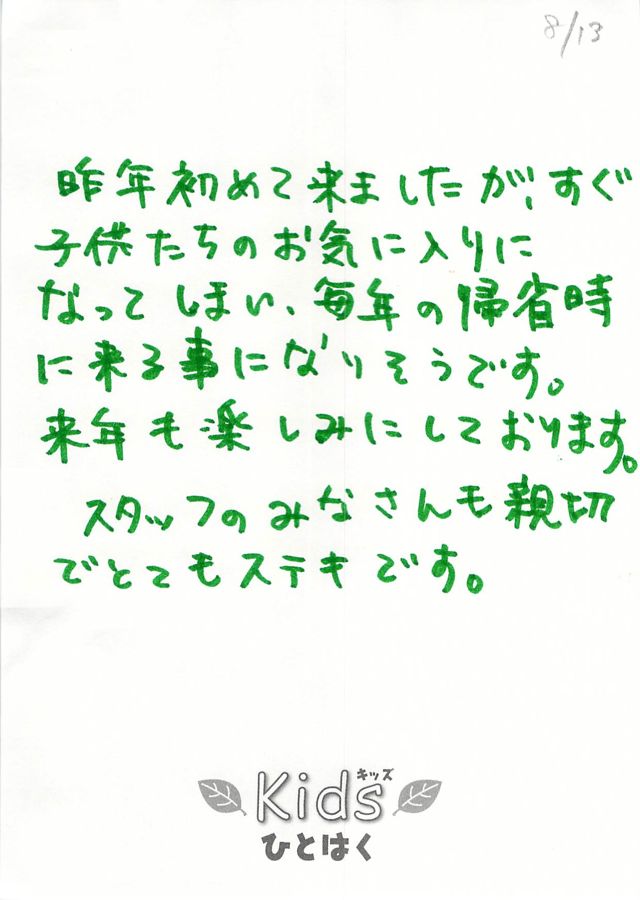 8/13
昨年初めて来ましたが、すぐ
子供たちのお気に入りに
なってしまい、毎年の帰省時
に来る事になりそうです。
来年も楽しみにしております。
スタッフのみなさんも親切
でとてもステキです。
キッズ
Kids
ひとはく